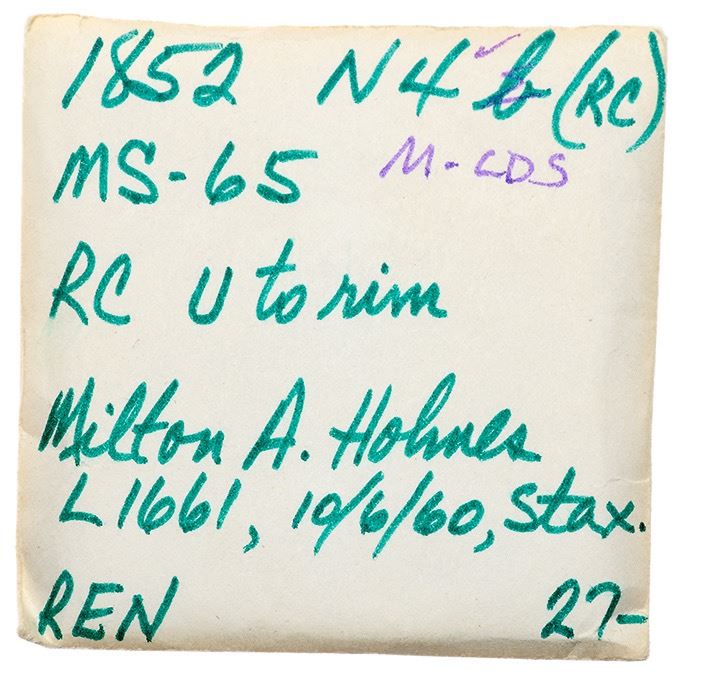 1852 N4 b (RC)
MS-65 M-LDS
RC U to rim
Milton A. Holmes
L1661, 10/6/60, Stax.
REN 27-